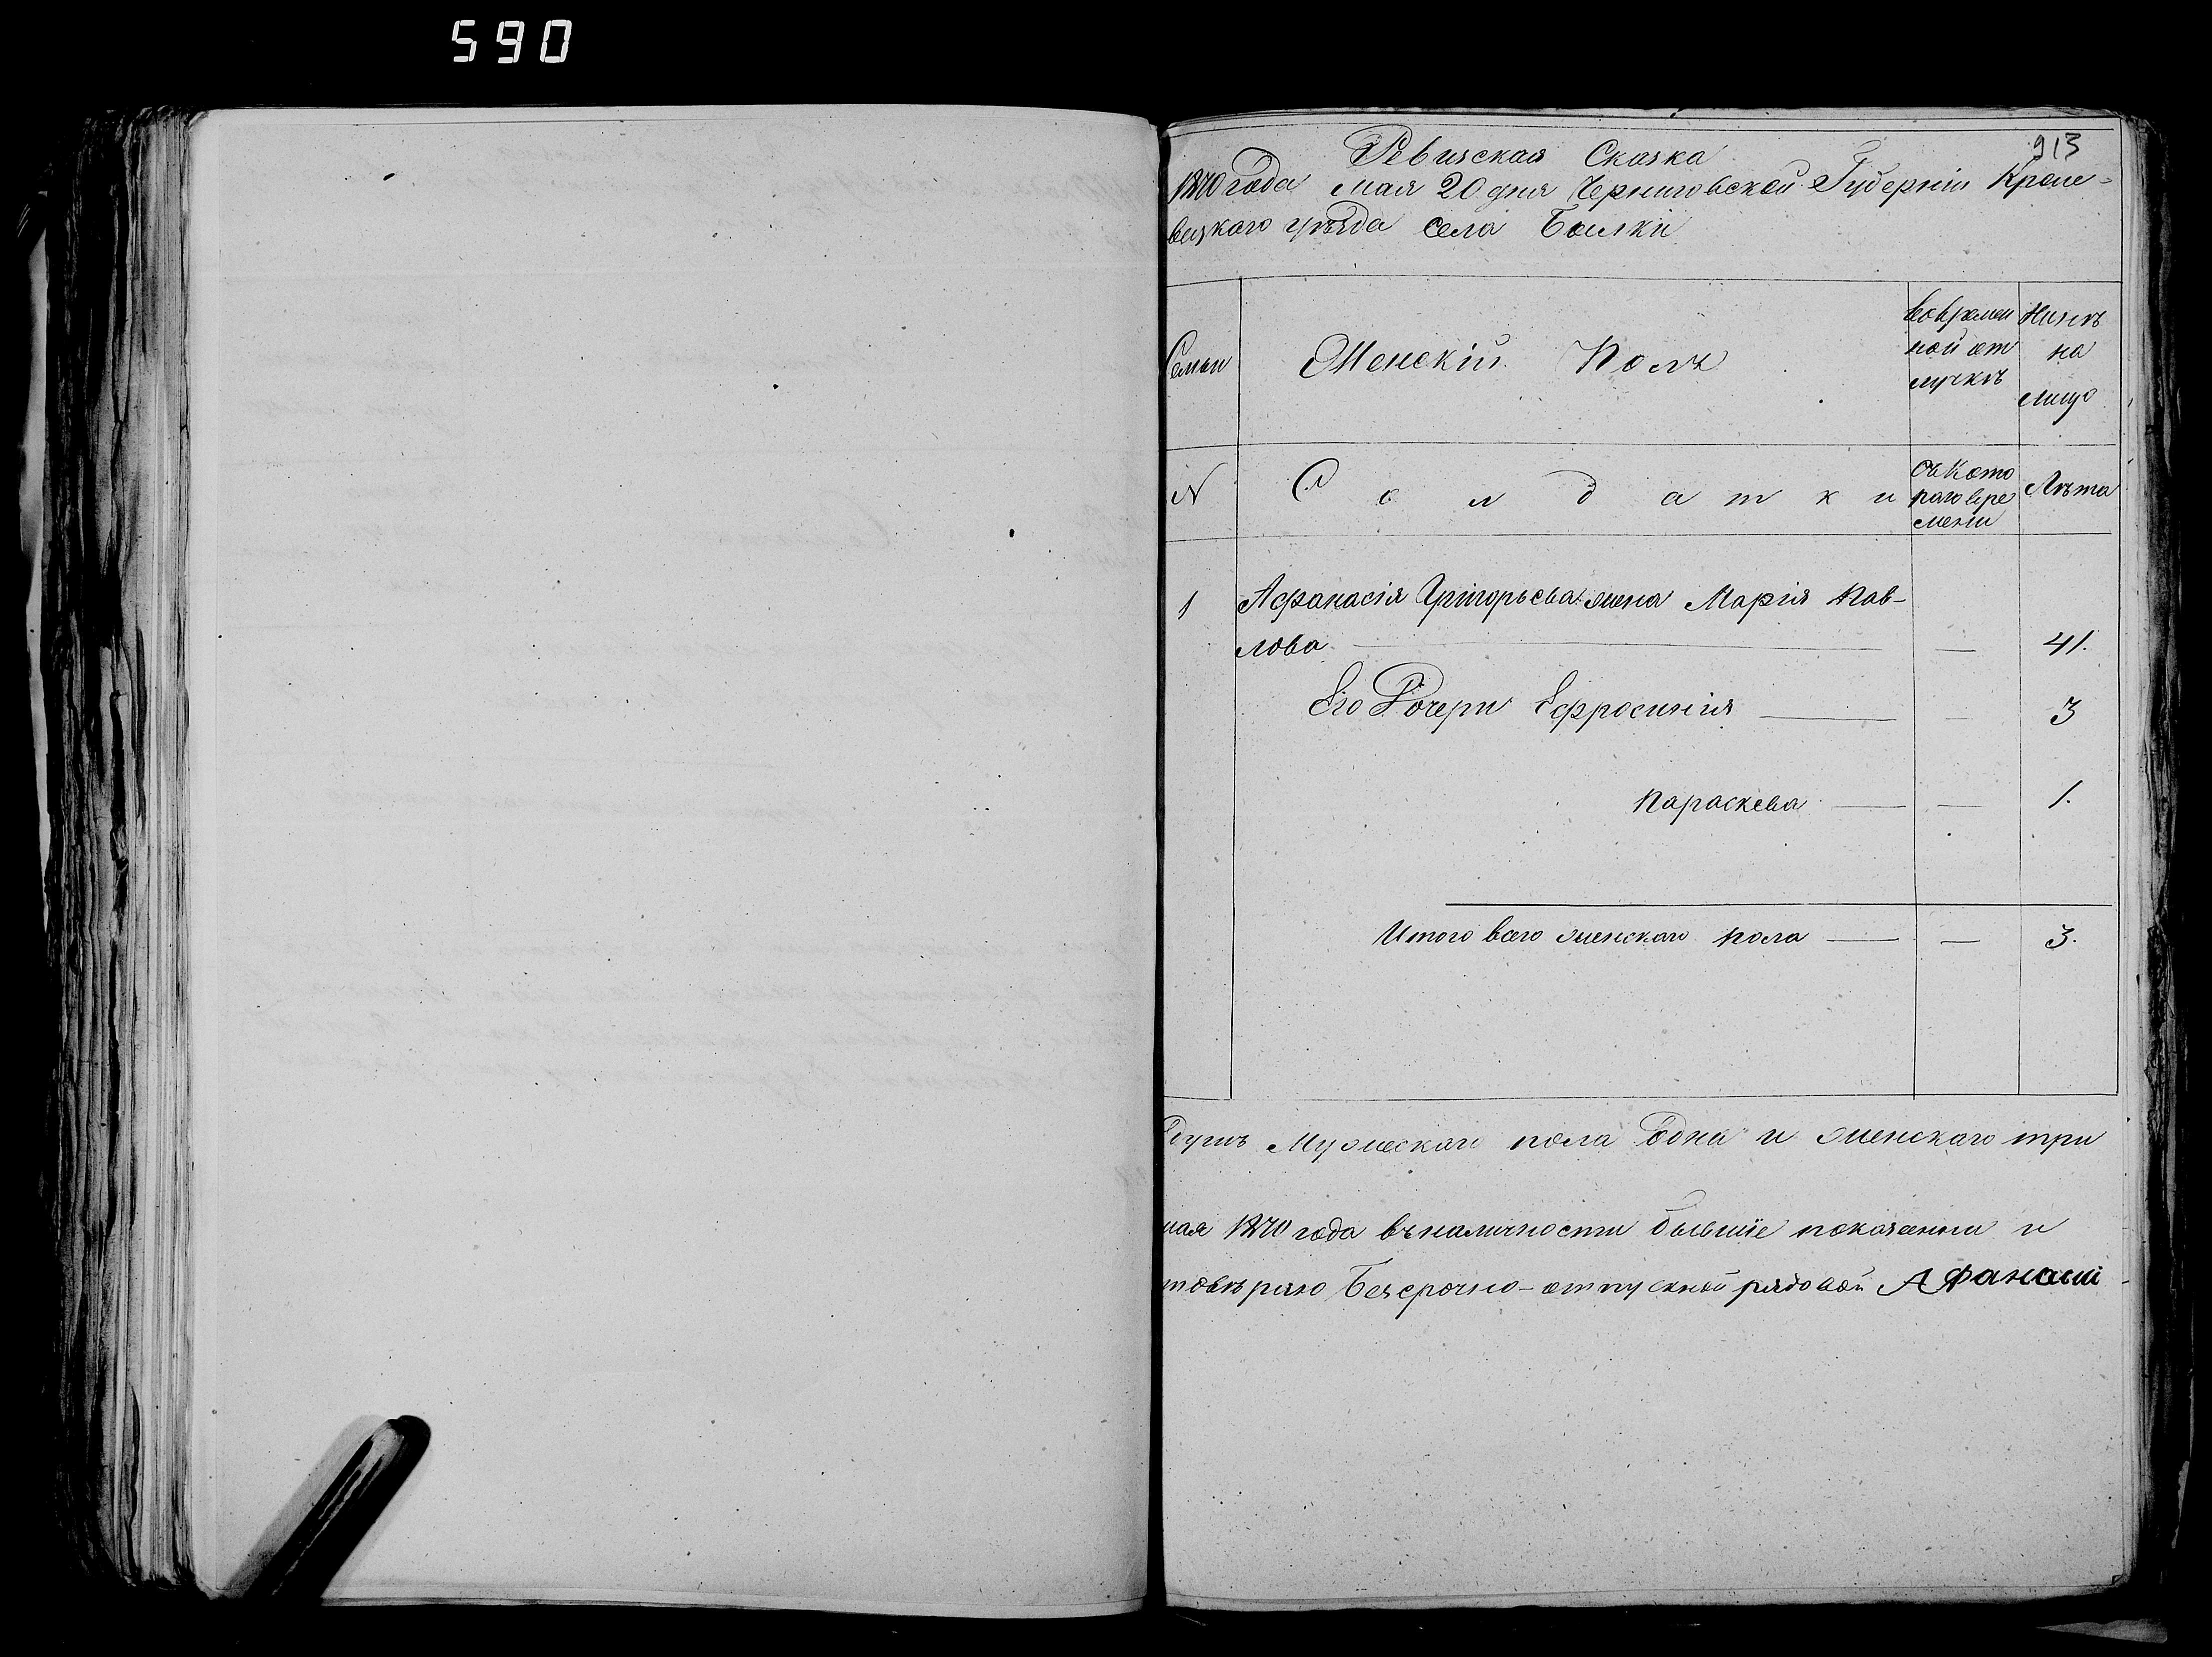 590
913
Ревизская Сказка
1870 года мая 20 дня Черниговской Губерніи Кроле-
вецкаго уѣзда села
Семьи
Женскій Полъ
во времен
ной от
лучкѣ
Нынѣ
на
лицо
N
Солдатки
съ кото
раго вре
мени
Лѣта
1
Афанасія Григорьева жена Марія Пав-
лова — — 41.
Его Дочери Ефросинія — — 3
Параскева — — 1.
Итого всего женскаго пола — — 3.
Мужескаго пола одна и женскаго три
мая 1870 года въ наличности бывшіе показанны и
Безсрочно-отпускной рядовой Афанасій